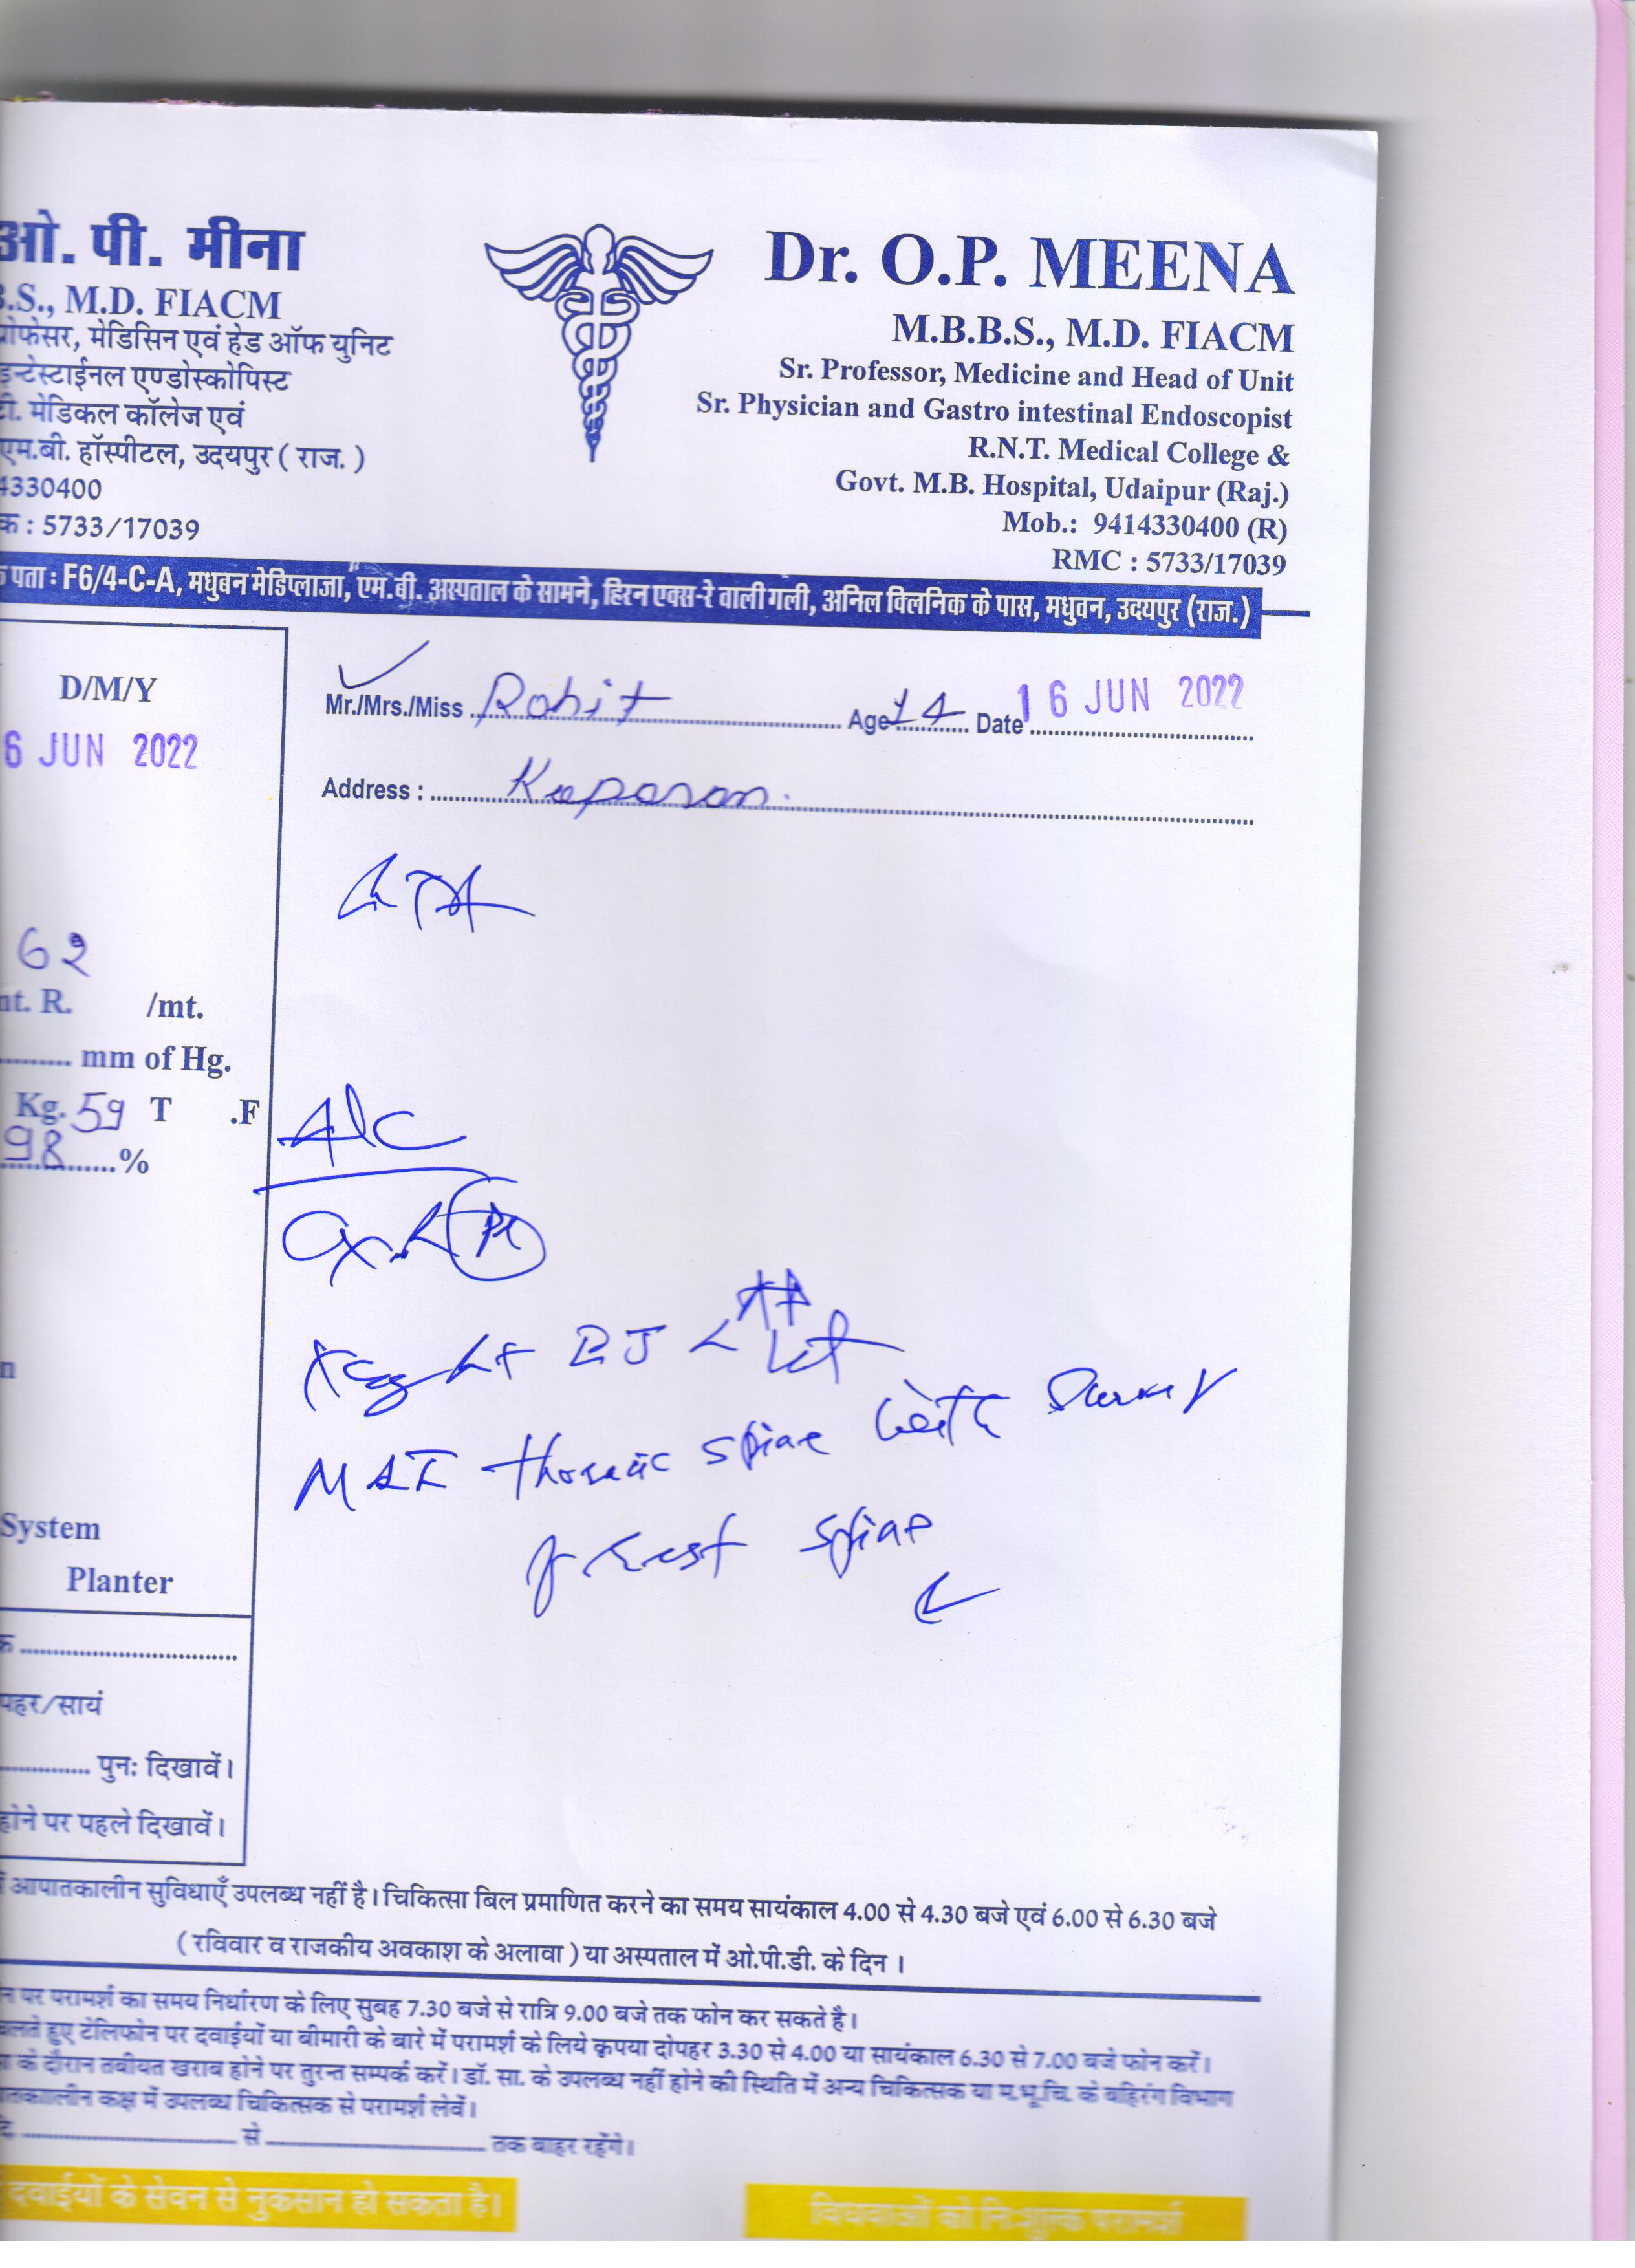 ओ. पी. मीना
Dr. O.P. MEENA
B.S., M.D. FIACM
M.B.B.S., M.D. FIACM
प्रोफेसर, मेडिसिन एवं हेड ऑफ युनिट
Sr. Professor, Medicine and Head of Unit
इन्टेस्टाईनल एण्डोस्कोपिस्ट
Sr. Physician and Gastro intestinal Endoscopist
टी. मेडिकल कॉलेज एवं
R.N.T. Medical College &
एम.बी. हॉस्पीटल, उदयपुर ( राज. )
Govt. M.B. Hospital, Udaipur (Raj.)
4330400
Mob.: 9414330400 (R)
क : 5733/17039
RMC : 5733/17039
पता : F6/4-C-A, मधुबन मेडिप्लाजा, एम.बी. अस्पताल के सामने, हिरन एक्स-रे वाली गली, अनिल क्लिनिक के पास, मधुवन, उदयपुर (राज.)
D/M/Y
6 JUN 2022
62
nt. R. /mt.
mm of Hg.
Kg. 59 T .F
98 %
System
Planter
पहर/सायं
पुनः दिखावें।
होने पर पहले दिखावें।
Mr./Mrs./Miss Rohit Age 14 Date 16 JUN 2022
Address : Kaparan
MRI thoracic spine with
spine
आपातकालीन सुविधाएँ उपलब्ध नहीं है। चिकित्सा बिल प्रमाणित करने का समय सायंकाल 4.00 से 4.30 बजे एवं 6.00 से 6.30 बजे
( रविवार व राजकीय अवकाश के अलावा ) या अस्पताल में ओ.पी.डी. के दिन ।
न पर परामर्श का समय निर्धारण के लिए सुबह 7.30 बजे से रात्रि 9.00 बजे तक फोन कर सकते है।
चलते हुए टेलिफोन पर दवाईयों या बीमारी के बारे में परामर्श के लिये कृपया दोपहर 3.30 से 4.00 या सायंकाल 6.30 से 7.00 बजे फोन करें।
के दौरान तबीयत खराब होने पर तुरन्त सम्पर्क करें। डॉ. सा. के उपलब्ध नहीं होने की स्थिति में अन्य चिकित्सक या म.भू.चि. के बहिरंग विभाग
कक्ष में उपलब्ध चिकित्सक से परामर्श लेवें।
से तक बाहर रहेंगे।
दवाईयों के सेवन से नुकसान हो सकता है।
विधवाओं को निःशुल्क परामर्श